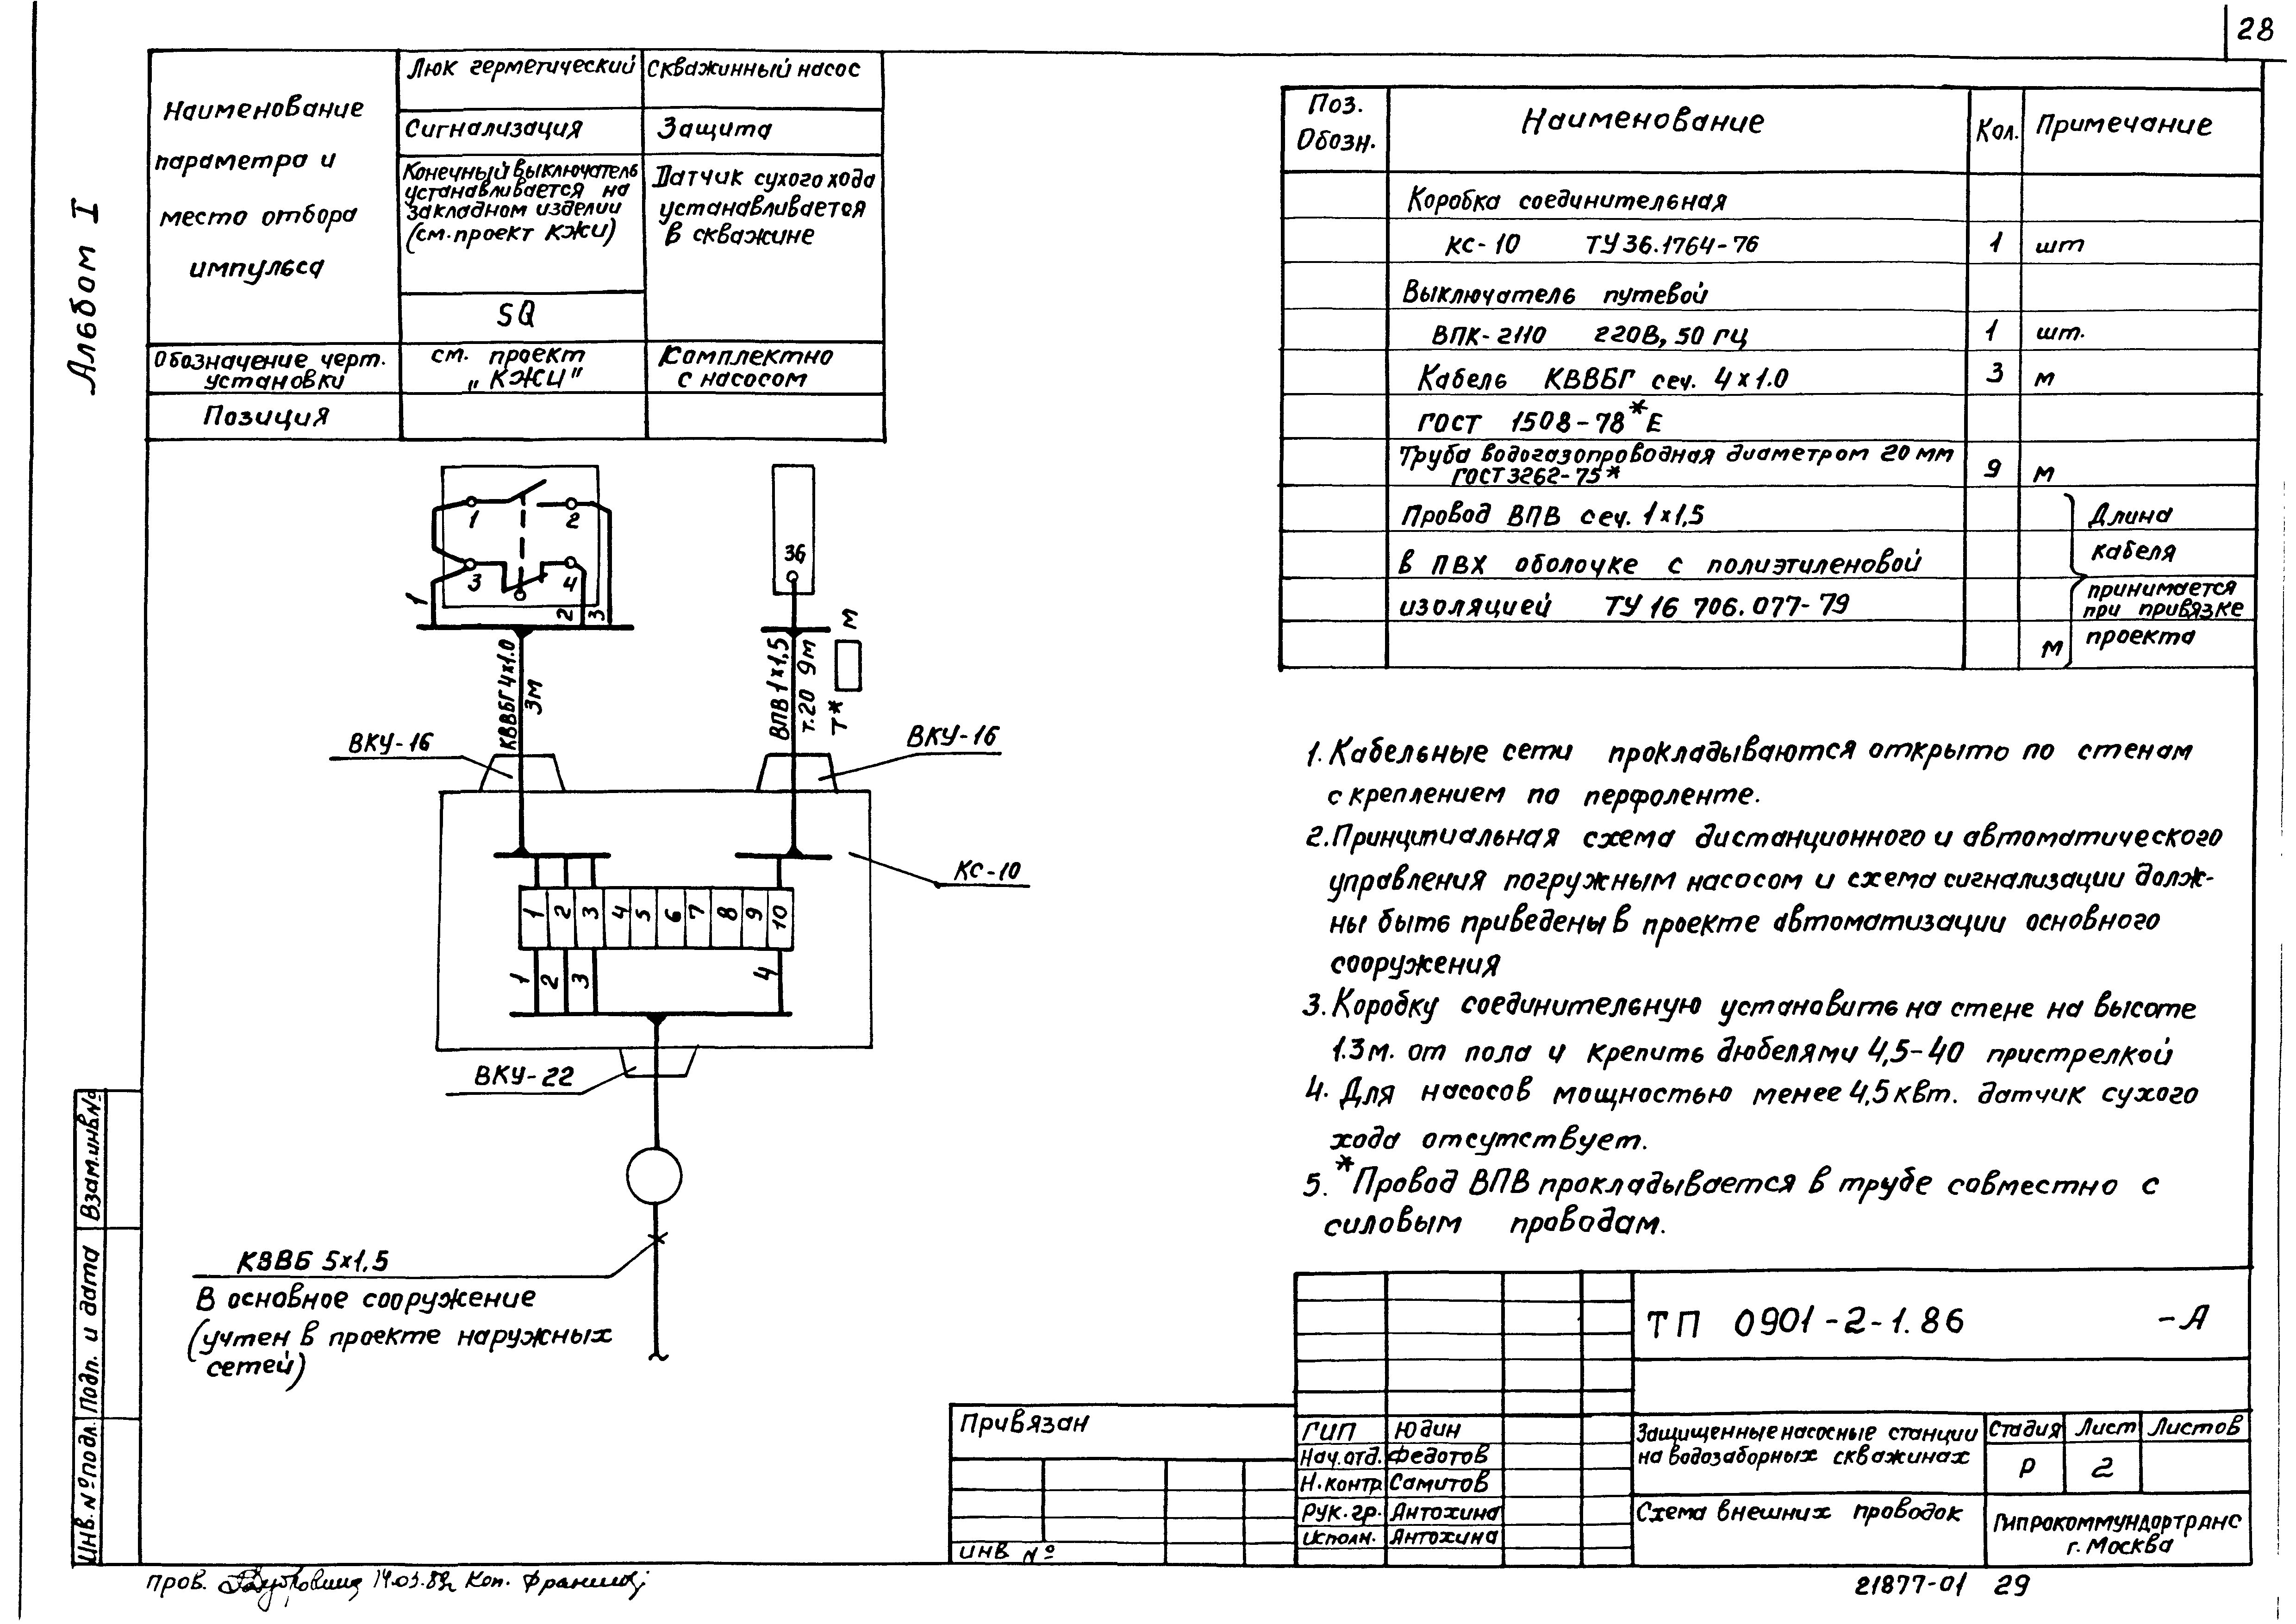 28
Альбом I
Наименование
параметра и
место отбора
импульса
Люк герметический
Скважинный насос
Сигнализация
Защита
Конечный выключатель
устанавливается на
закладном изделии
(см. проект КЖИ)
Датчик сухого хода
устанавливается
в скважине
SQ
Обозначение черт.
установки
см. проект
„КЖИ"
Комплектно
с насосом
Позиция
1
2
3
4
1
2
3
36
КВВБГ 4х1.0
3м
ВПВ 1х1,5
т.20 9м
Т*
м
ВКУ-16
ВКУ-16
КС-10
1 2 3 4 5 6 7 8 9 10
1 2 3 4
ВКУ-22
КВВБ 5х1.5
В основное сооружение
(учтен в проекте наружных
сетей)
Поз.
Обозн.
Наименование
Кол.
Примечание
Коробка соединительная
КС-10 ТУ 36.1764-76 1 шт
Выключатель путевой
ВПК-2110 220В, 50 гц 1 шт.
Кабель КВВБГ сеч. 4х1.0 3 м
ГОСТ 1508-78*Е
Труба водогазопроводная диаметром 20 мм
ГОСТ 3262-75* 9 м
Провод ВПВ сеч. 1х1,5
в ПВХ оболочке с полиэтиленовой
изоляцией ТУ 16 706.077-79
м
Длина
кабеля
принимается
при привязке
проекта
1. Кабельные сети прокладываются открыто по стенам
с креплением по перфоленте.
2. Принципиальная схема дистанционного и автоматического
управления погружным насосом и схема сигнализации долж-
ны быть приведены в проекте автоматизации основного
сооружения
3. Коробку соединительную установить на стене на высоте
1.3м. от пола и крепить дюбелями 4,5-40 пристрелкой
4. Для насосов мощностью менее 4,5 квт. датчик сухого
хода отсутствует.
5. *Провод ВПВ прокладывается в трубе совместно с
силовым проводам.
ТП 0901-2-1.86 -А
Привязан
инв №
ГИП Юдин
Нач.отд. Федотов
Н.контр Самитов
Рук.гр. Антохина
исполн. Антохина
Защищенные насосные станции
на водозаборных скважинах
Стадия Лист Листов
Р 2
Схема внешних проводок
Гипрокоммундортранс
г. Москва
Взам.инв.№
Подп. и дата
Инв.№ подл.
пров.
Коп.
21877-01 29